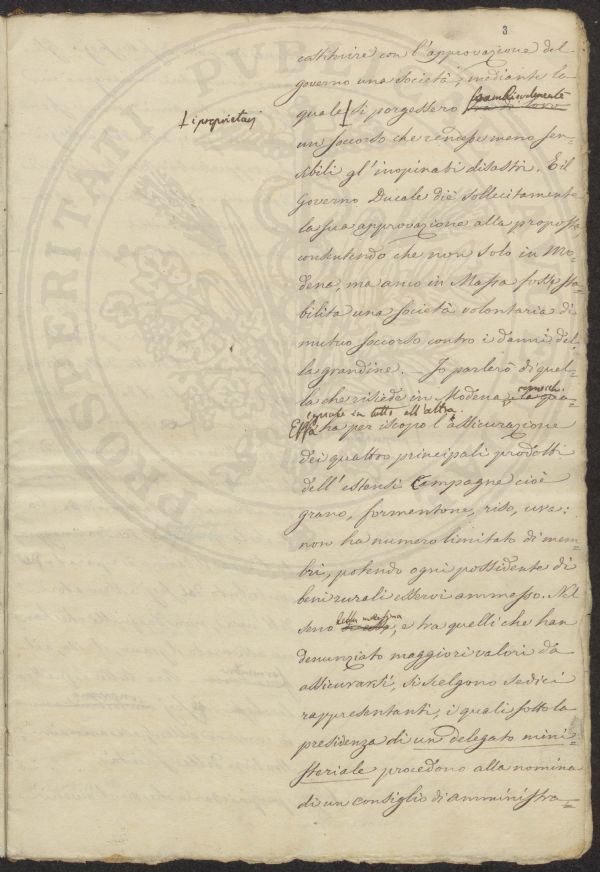 3
costituire con l'approvazione del
governo una Società, mediante la
scambievolmente
quale si porgessero fra di loro
i proprietarj
un soccorso che rendesse meno sen=
sibili gl'inopinati disastri. E il
Governo Ducale diè sollecitamente
la sua approvazione alla proposta
contentendo che non solo in Mo=
dena, ma anco in Massa fosse sta=
bilita una società volontaria di
mutuo soccorso contro i danni del=
la grandine. — Io parlerò di quel=
la che risiede in Modena, e la qua=
in tutto all'altra.
Essa ha per iscopo l'assicurazione
dei quattro principali prodotti
dell'estensi Campagne cioè
grano, formentone, riso, uva:
non ha numero limitato di mem=
bri, potendo ogni possidente di
beni rurali esservi ammesso. Nel
della medesima
seno di essa, e tra quelli che han
denunziato maggiori valori da
assicurarsi, si scelgono sedici
rappresentanti, i quali sotto la
presidenza di un delegato mini=
steriale procedono alla nomina
di un consiglio di amministra=
PRO PERITATI PUBL